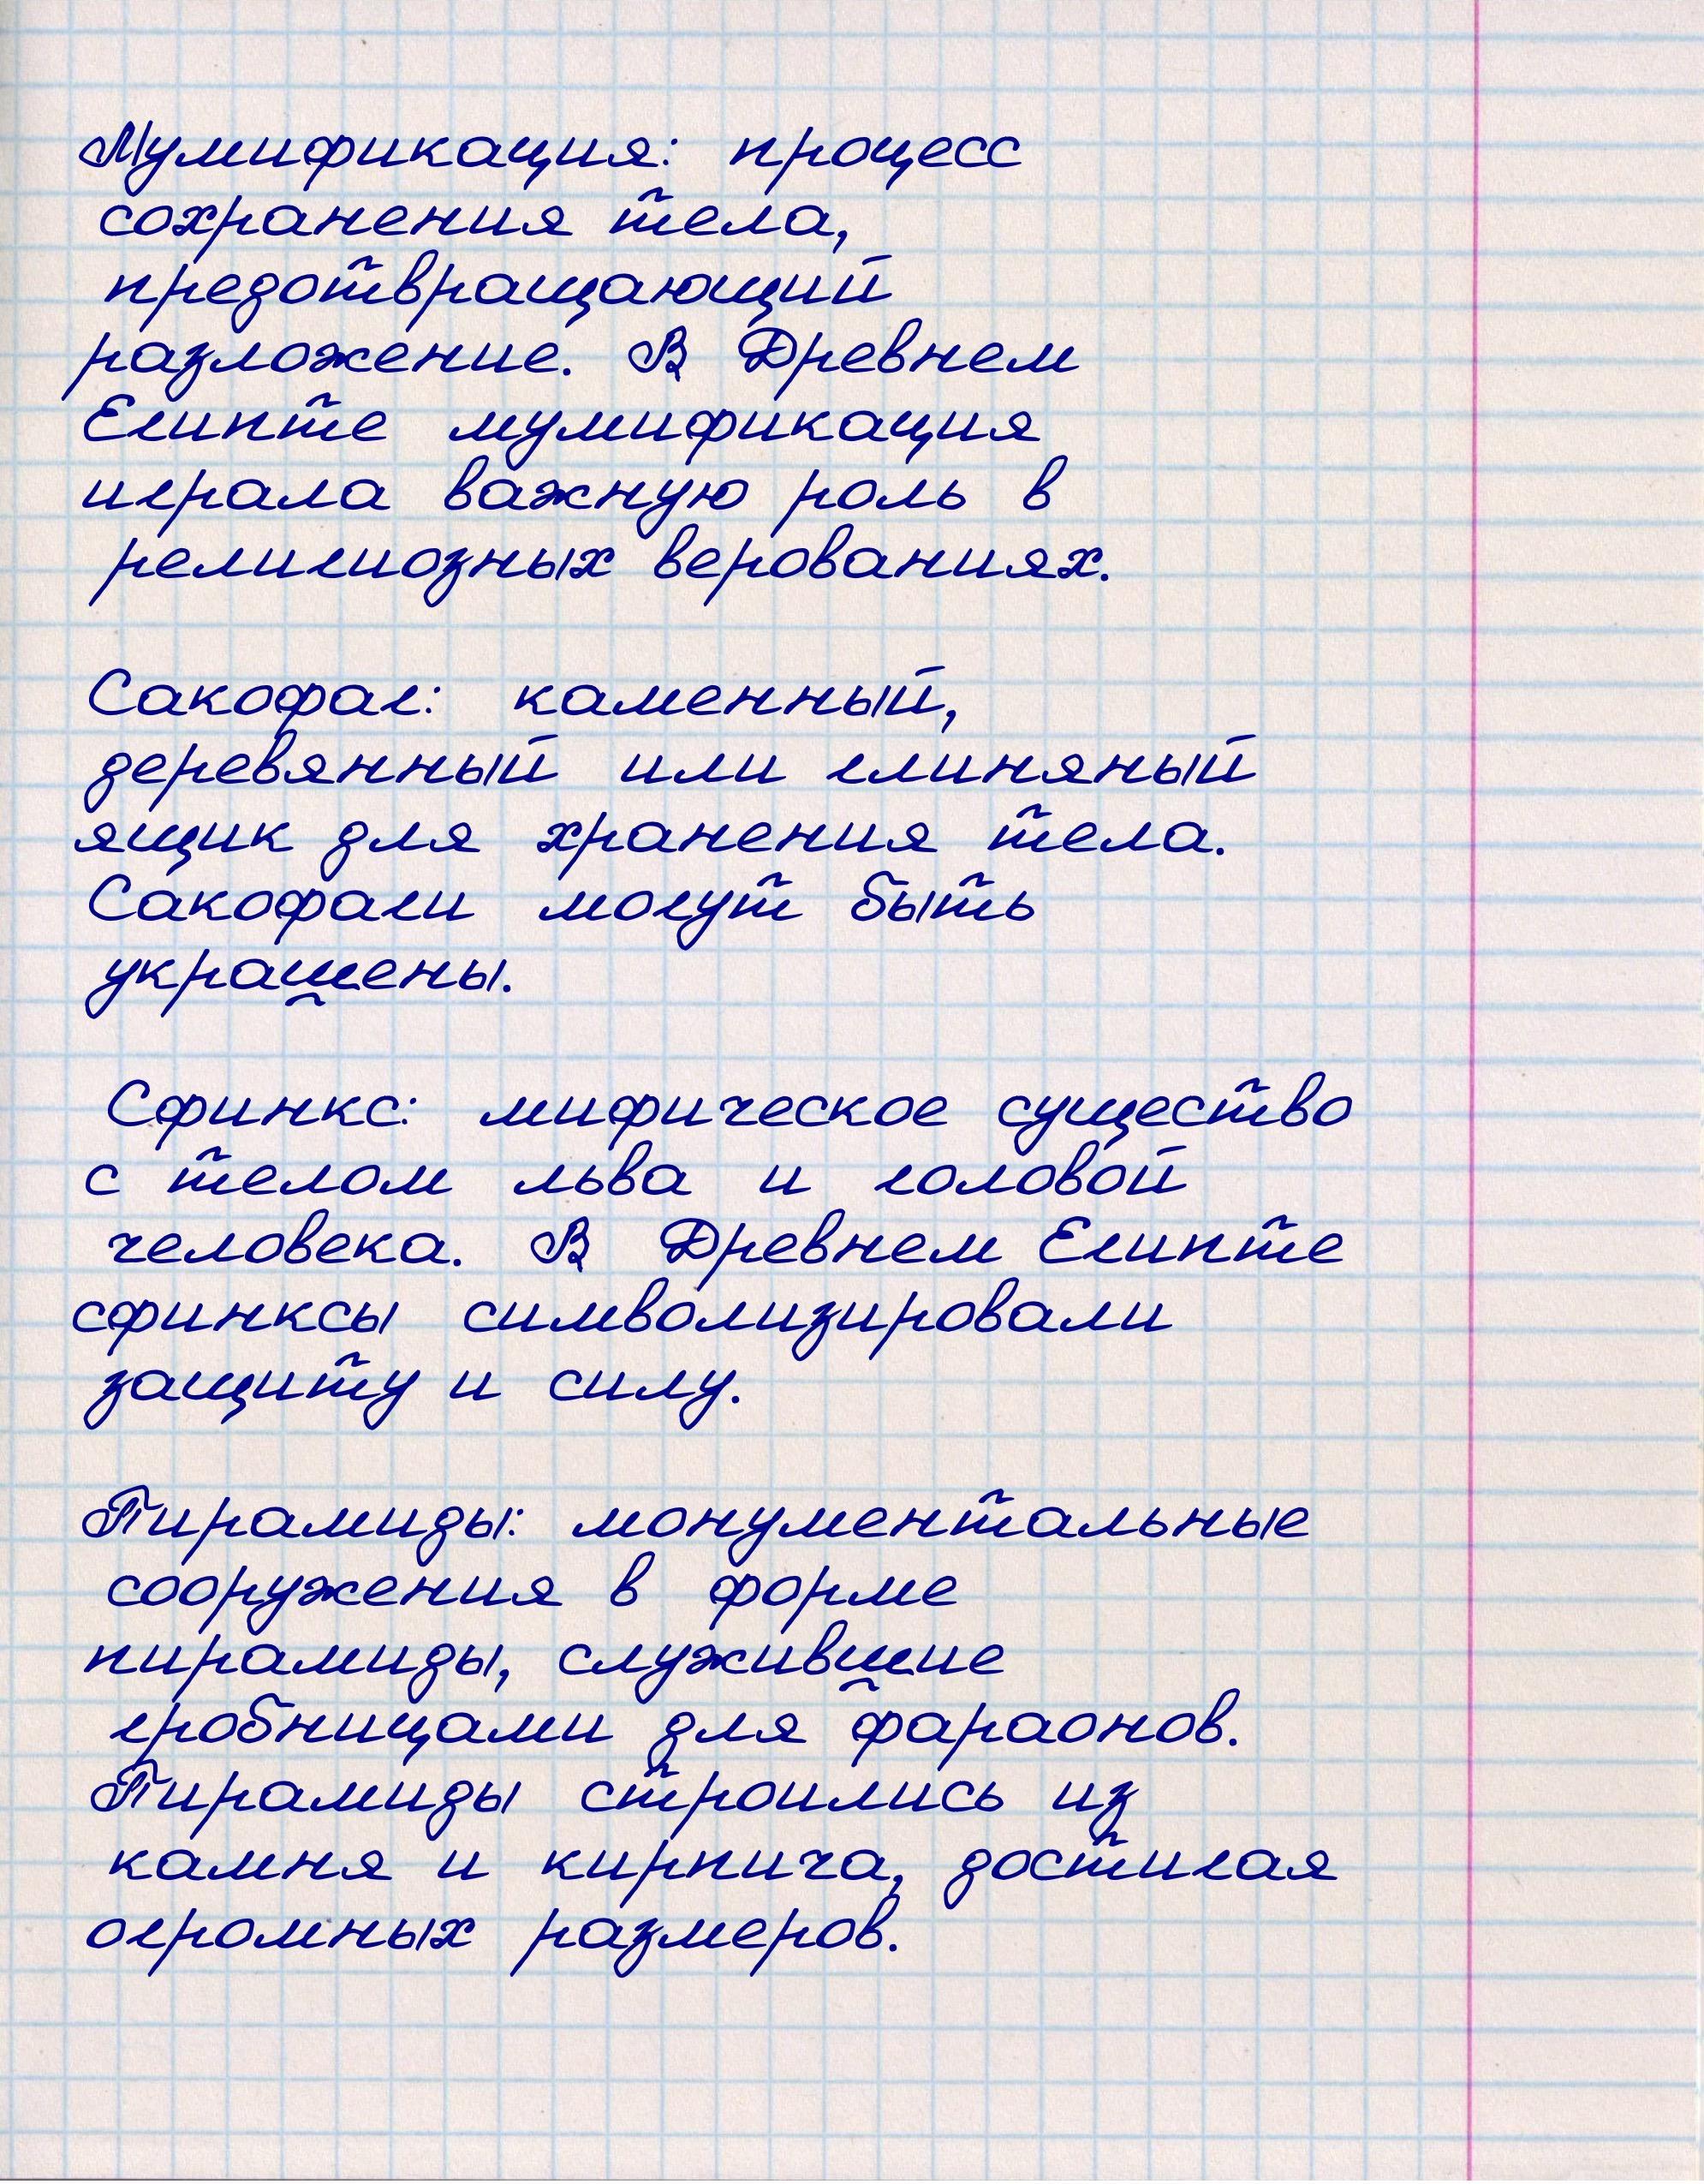 Мумификация: процесс
сохранения тела,
предотвращающий
разложение. В Древнем
Египте мумификация
играла важную роль в
религиозных верованиях.
Сакофаг: каменный,
деревянный или глиняный
ящик для хранения тела.
Сакофаги могут быть
украшены.
Сфинкс: мифическое существо
с телом льва и головой
человека. В Древнем Египте
сфинксы символизировали
защиту и силу.
Пирамиды: монументальные
сооружения в форме
пирамиды, служившие
гробницами для фараонов.
Пирамиды строились из
камня и кирпича, достигая
огромных размеров.